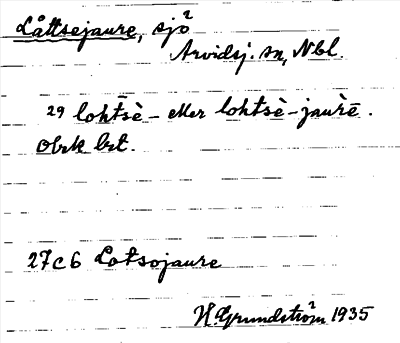 Låttsejaure, sjö
Arvidsj. sn, Nbl.
29 lohtsè- eller lohtsè-jaùrē.
Obrk. bet.
27c6 Lotsojaure
H. Grundström 1935